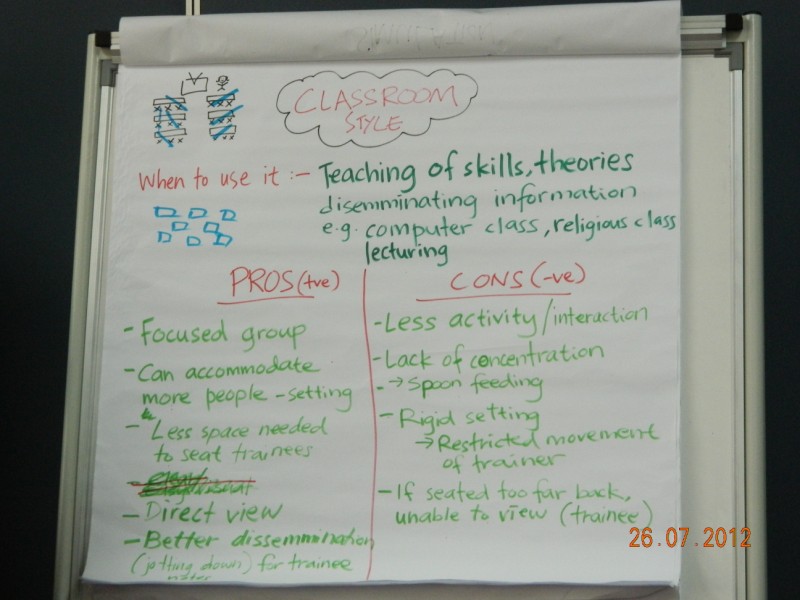 CLASSROOM
STYLE
When to use it :- Teaching of skills, theories
disemminating information
e.g. computer class, religious class
lecturing
PROS (+ve)
- Focused group
- Can accommodate
more people - setting
- Less space needed
to seat trainees
- Direct view
- Better dissemmination
(jotting down) for trainee
CONS (-ve)
- Less activity/interaction
- Lack of concentration
- → Spoon feeding
- Rigid setting
→ Restricted movement
of trainer
- If seated too far back,
unable to view (trainee)
26.07.2012